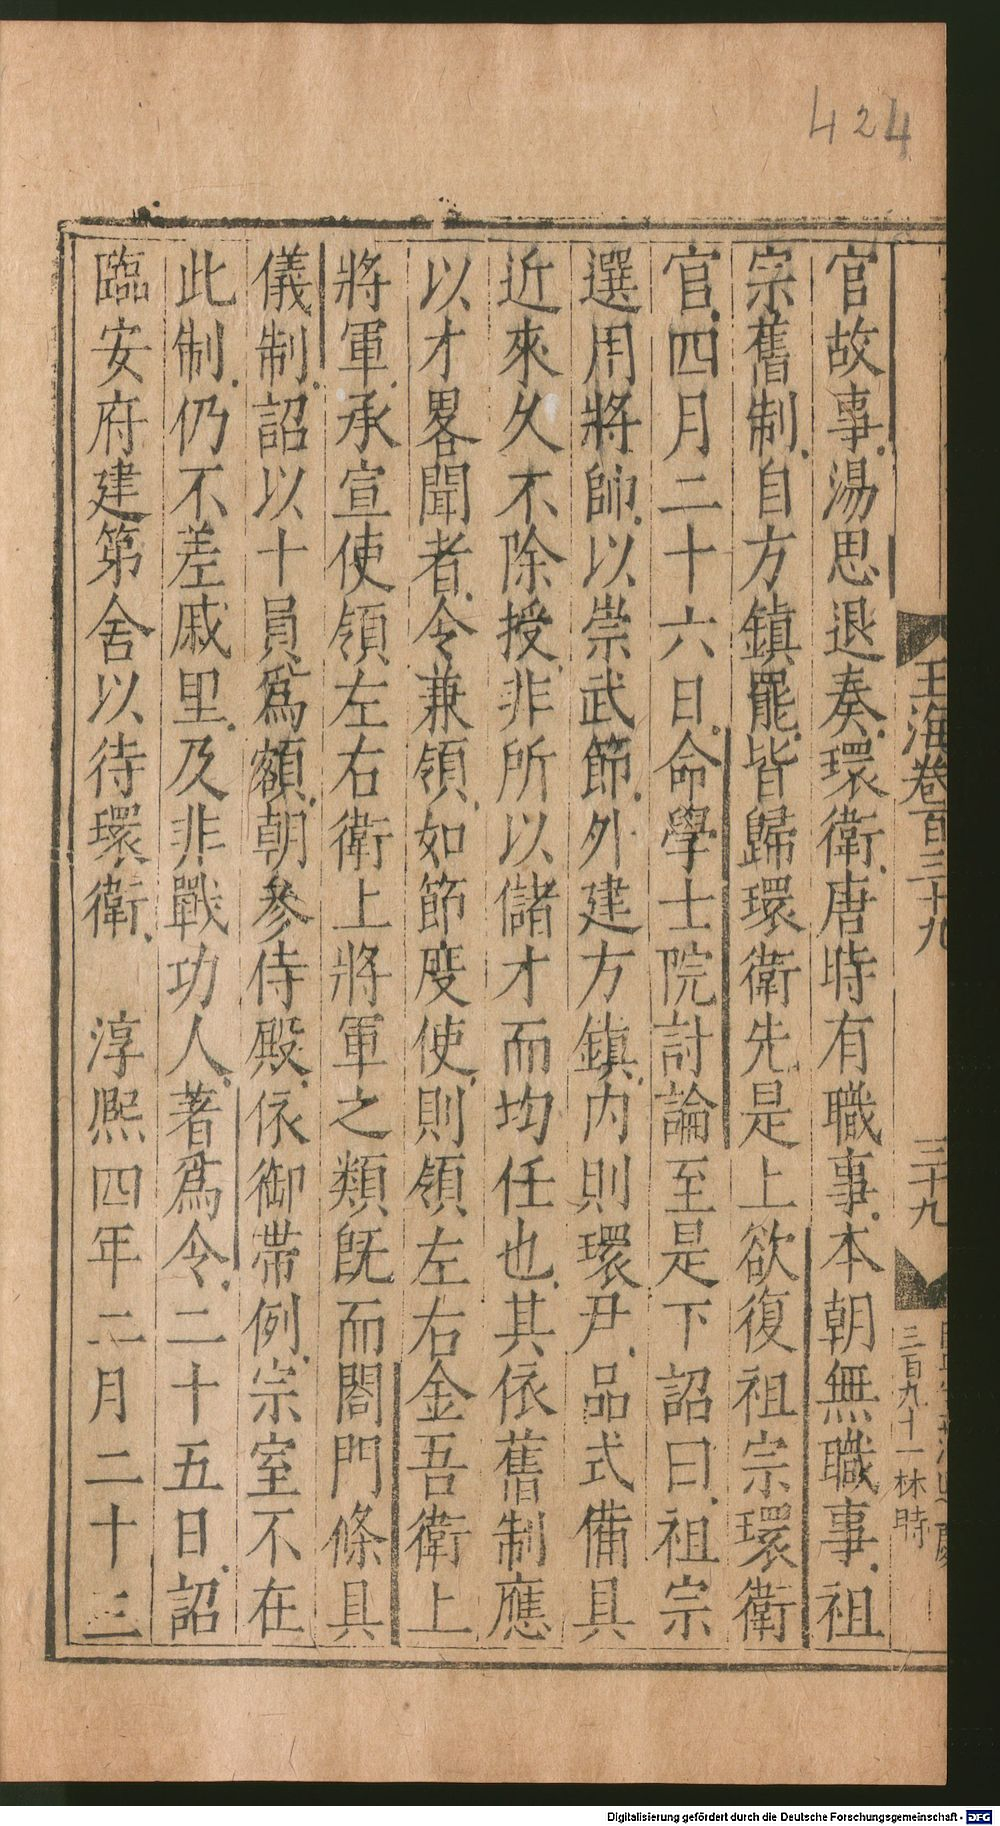 424
玉海卷百三十九
三十九
三百九十一林時
官故事湯思退奏環衛唐時有職事本朝無職事祖
宗舊制自方鎮罷皆歸環衛先是上欲復祖宗環衛
官四月二十六日命學士院討論至是下詔曰祖宗
選用將帥以崇武節外建方鎮內則環尹品式備具
近來久不除授非所以儲才而均任也其依舊制應
以才畧聞者令兼領如節度使則領左右金吾衛上
將軍承宣使領左右衛上將軍之類旣而閤門條具
儀制詔以十員爲額朝參侍殿依御帶例宗室不在
此制仍不差戚里及非戰功人著爲令二十五日詔
臨安府建第舍以待環衛 淳熙四年二月二十三
Digitalisierung gefördert durch die Deutsche Forschungsgemeinschaft - DFG